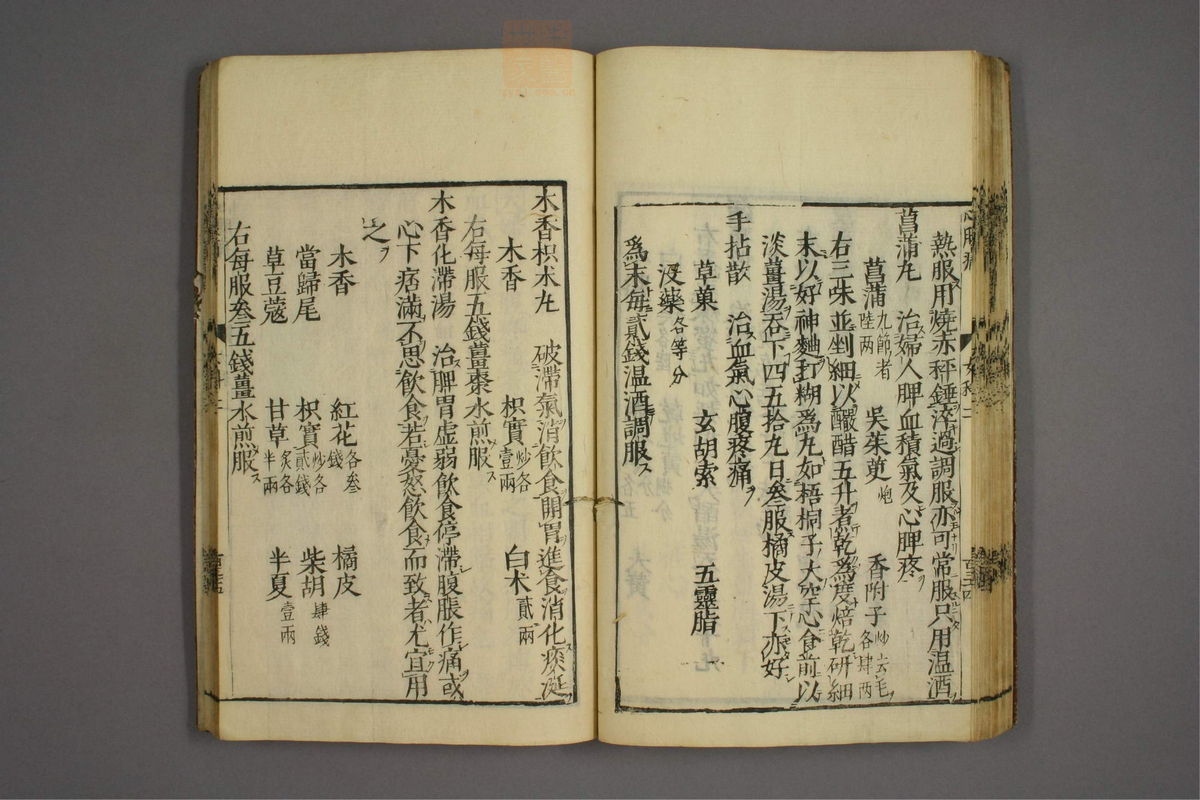 熱服用燒赤秤錘淬過調服亦可常服只用温酒
菖蒲丸 治婦人脾血積氣及心脾疼
菖蒲九節者陸兩 吳茱萸炮 香附子炒去毛各肆两
右三味並剉細以釅醋五升煮乾爲度焙乾研細
末以好神麯打糊爲丸如梧桐子大空心食前以
淡薑湯吞下四五拾丸日叁服橘皮湯下亦好
手拈散 治血氣心腹疼痛
草菓 玄胡索 五靈脂
没藥各等分
爲末每貳錢温酒調服
木香枳朮丸 破滯氣消飲食開胃進食消化痰涎
木香 枳實炒各壹兩 白朮貳兩
右每服五錢薑棗水煎服
木香化滯湯 治脾胃虚弱飲食停滯腹脹作痛或
心下痞滿不思飲食若憂怒飲食而致者尤宜用
之
木香 紅花各叁錢 橘皮
當歸尾 枳實炒各貳錢 柴胡肆錢
草豆蔻 甘草炙各半兩 半夏壹兩
右每服叁五錢薑水煎服